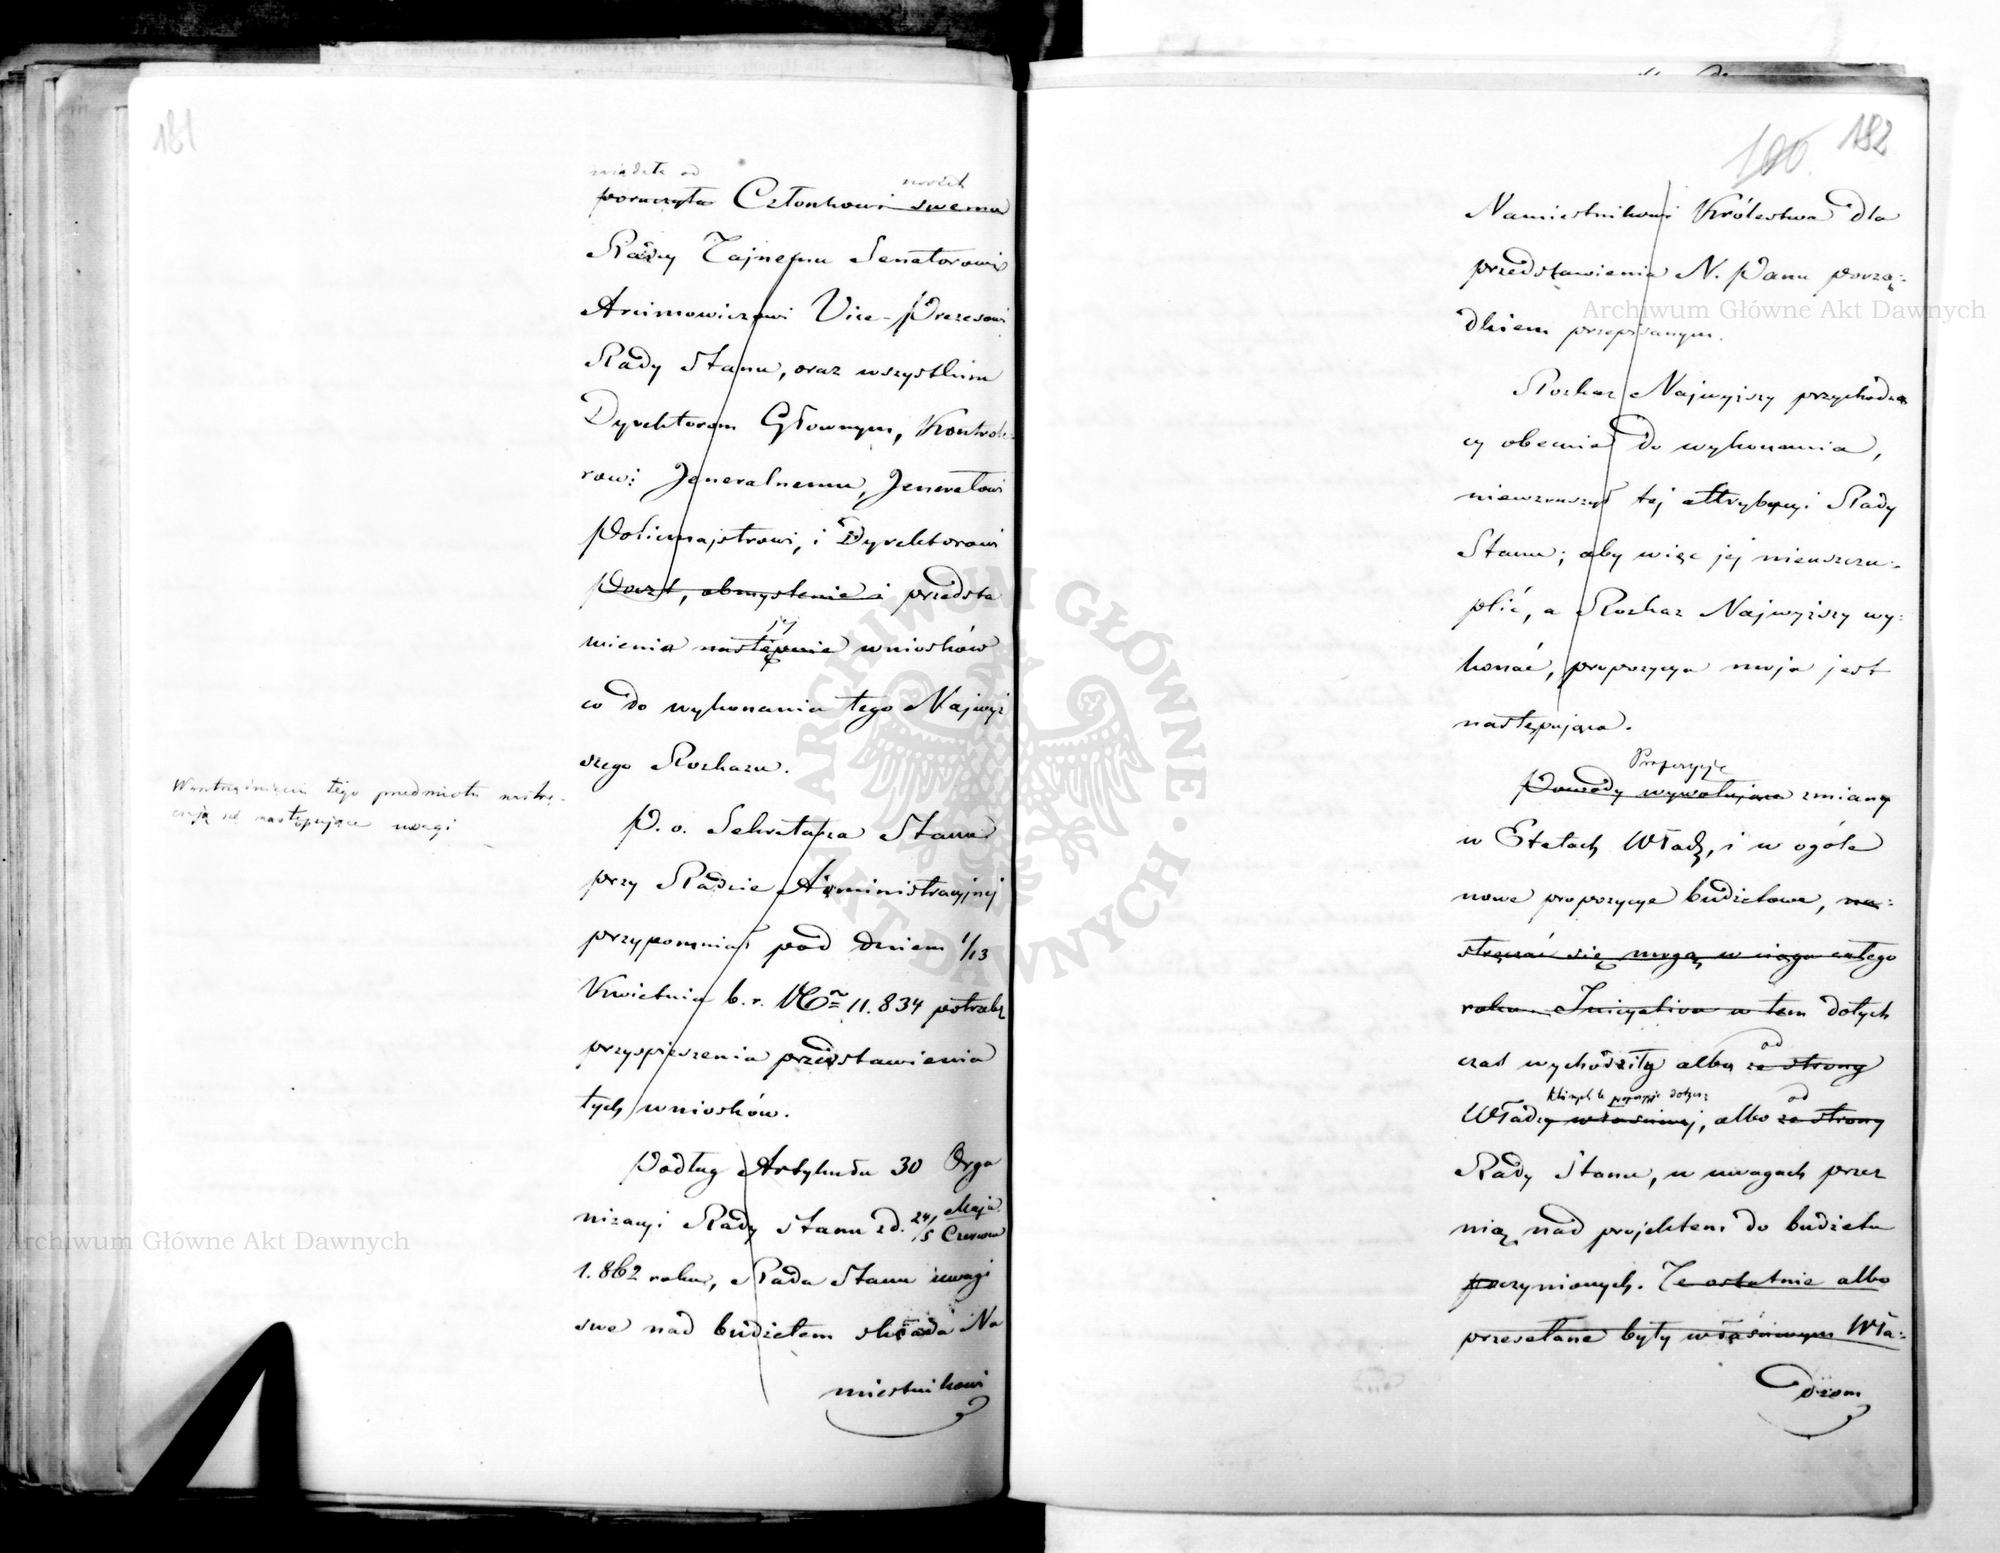 181
poruczyła Członkowi swemu
Radzcy Tajnemu Senatorowi
Arcimowiczowi Vice-Prezesowi
Rady Stanu, oraz wszystkim
Dyrektorom Głównym, Kontrol-
rowi Jeneralnemu, Jenerałowi
Policmajstrowi, i Dyrektorowi
Poczt, obmyślenie i przedsta
wienia następnie wniosków
jej
co do wykonania tego Najwyż
szego Rozkazu.
tego przedmiotu nastrę-
czają się następujące uwagi
P. o. Sekretarza Stanu
przy Radzie Administracyjnej
przypomniał pod dniem 1/13
Kwietnia b. r. No 11.834 potrzebę
przyspieszenia przedstawienia
tych wniosków.
Podług Artykułu 30 Orga
nizacyi Rady Stanu z d. 24/5 Maja Czerwca
1.862 roku, Rada Stanu uwagi
swe nad budżetem składa Na
miestnikowi
100 182
Namiestnikowi Królestwa dla
przedstawienia N. Panu porzą-
dkiem przepisanym.
Rozkaz Najwyższy przychodzą
cy obecnie do wykonania,
niewzruszył tej attrybucyi Rady
Stanu; aby więc jej nieuszczu-
plić, a Rozkaz Najwyższy wy-
konać, propozycya moja jest
następująca.
Propozycje
Powody wywołujące zmiany
w Etatach Władz, i w ogóle
nowe propozycye budżetowe, na-
stręczać się mogą w ciągu całego
roku. Inicyatiwa w tem dotych
czas wychodziły albo ze strony
od
Władzy właściwej, albo ze strony
których te propozycje dotyczą
od
Rady Stanu, w uwagach przez
nią nad projektem do budżetu
poczynionych. Te ostatnie albo
przesełane były właściwym Wła-
dzom
Archiwum Główne Akt Dawnych
Archiwum Główne Akt Dawnych
ARCHIWUM GŁÓWNE AKT DAWNYCH